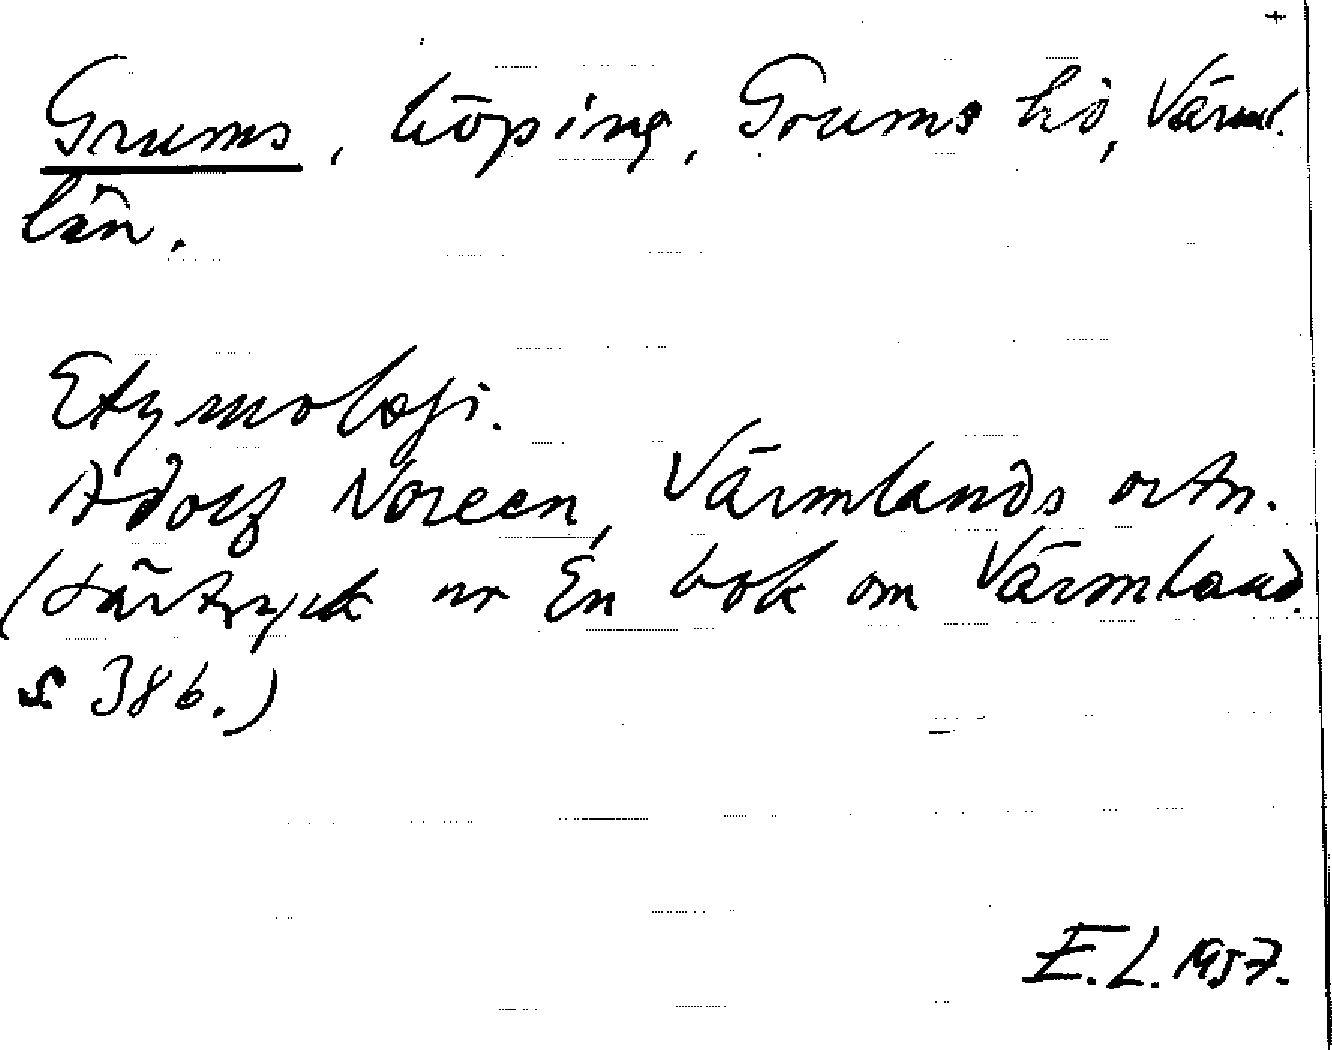 Grums, köping, Grums hd, Värml.
län.
Etymologi.
Adolf Noreen, Värmlands ortn.
(särtryck ur En bok om Värmland.
s. 386.)
E.L. 1957.